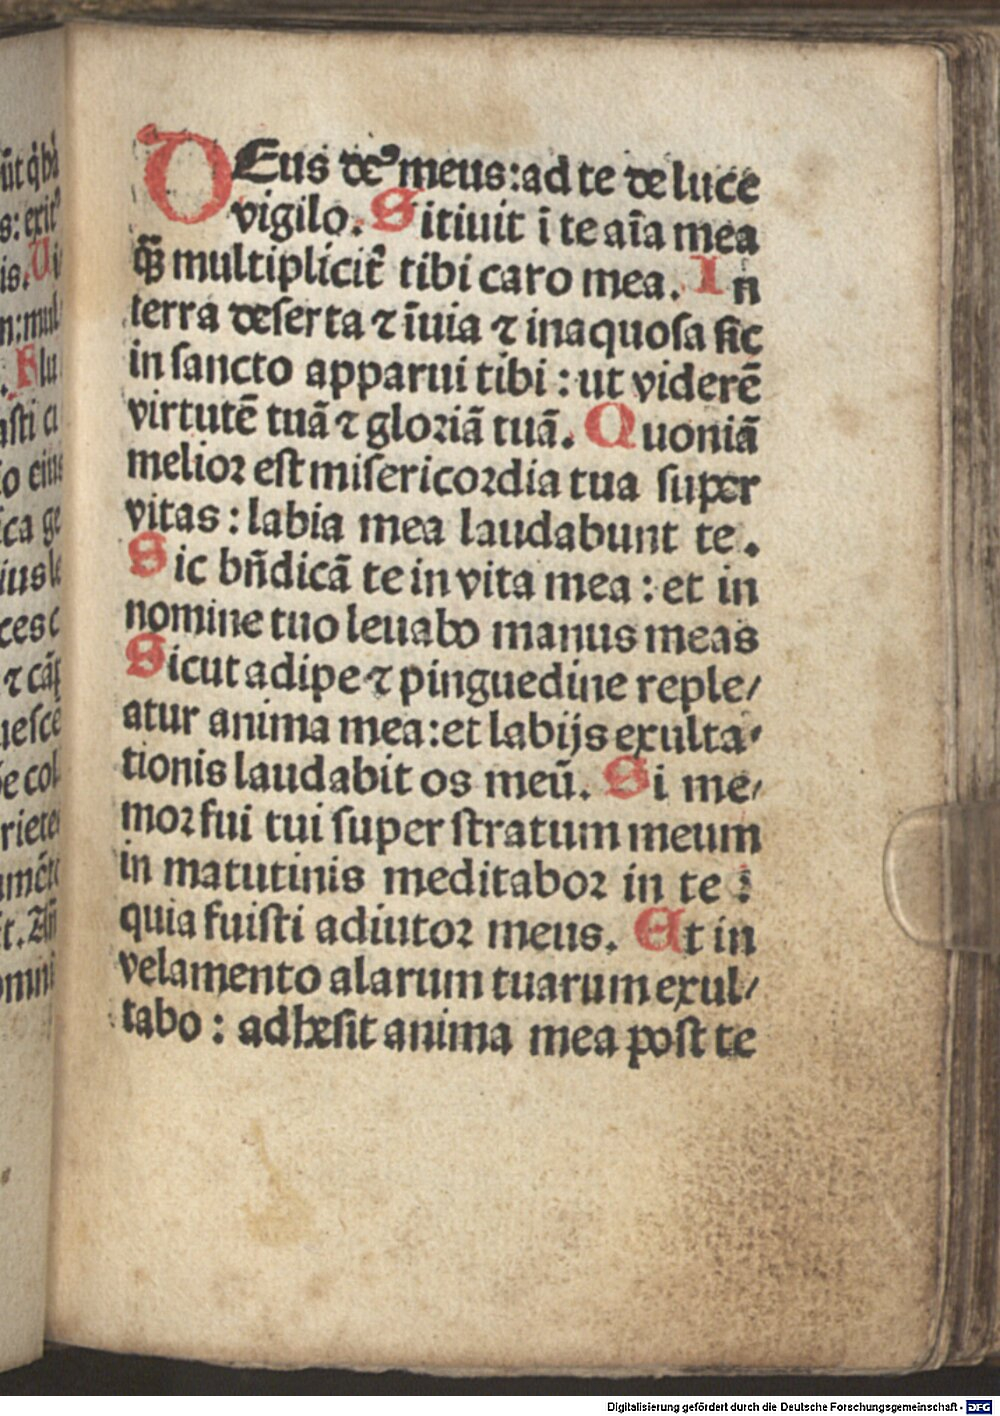 DEus de⁹ meus: ad te de luce
vigilo. Sitiuit ī te aīa mea
q̄ꝫ multiplicit̄ tibi caro mea. In
terra deserta ⁊ īuia ⁊ inaquosa sic
in sancto apparui tibi: ut viderē
virtutē tuā ⁊ gloriā tuā. Quoniā
melior est misericordia tua super
vitas: labia mea laudabunt te.
Sic bn̄dicā te in vita mea: et in
nomine tuo leuabo manus meas
Sicut adipe ⁊ pinguedine reple/
atur anima mea: et labijs exulta/
tionis laudabit os meū. Si me/
mor fui tui super stratum meum
in matutinis meditabor in te:
quia fuisti adiutor meus. Et in
velamento alarum tuarum exul/
tabo: adhesit anima mea post te
Digitalisierung gefördert durch die Deutsche Forschungsgemeinschaft - DFG